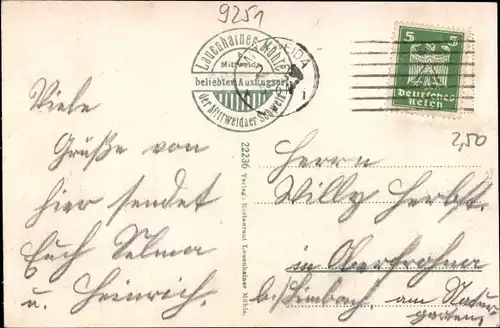 9251
Lauenhainer Mühle
Mittweida
beliebter Ausflugsort
der Mittweidaer Schweiz
5 5
Deutsches
Reich
2,50
Viele
Grüße von
hier sendet
Euch Selma
u. Heinrich.
22236 Verlag: Restaurant Lauenhainer Mühle.
Herrn
Willy Herbst.
in Oberfrohna
b. Limbach, am Natur
garten.